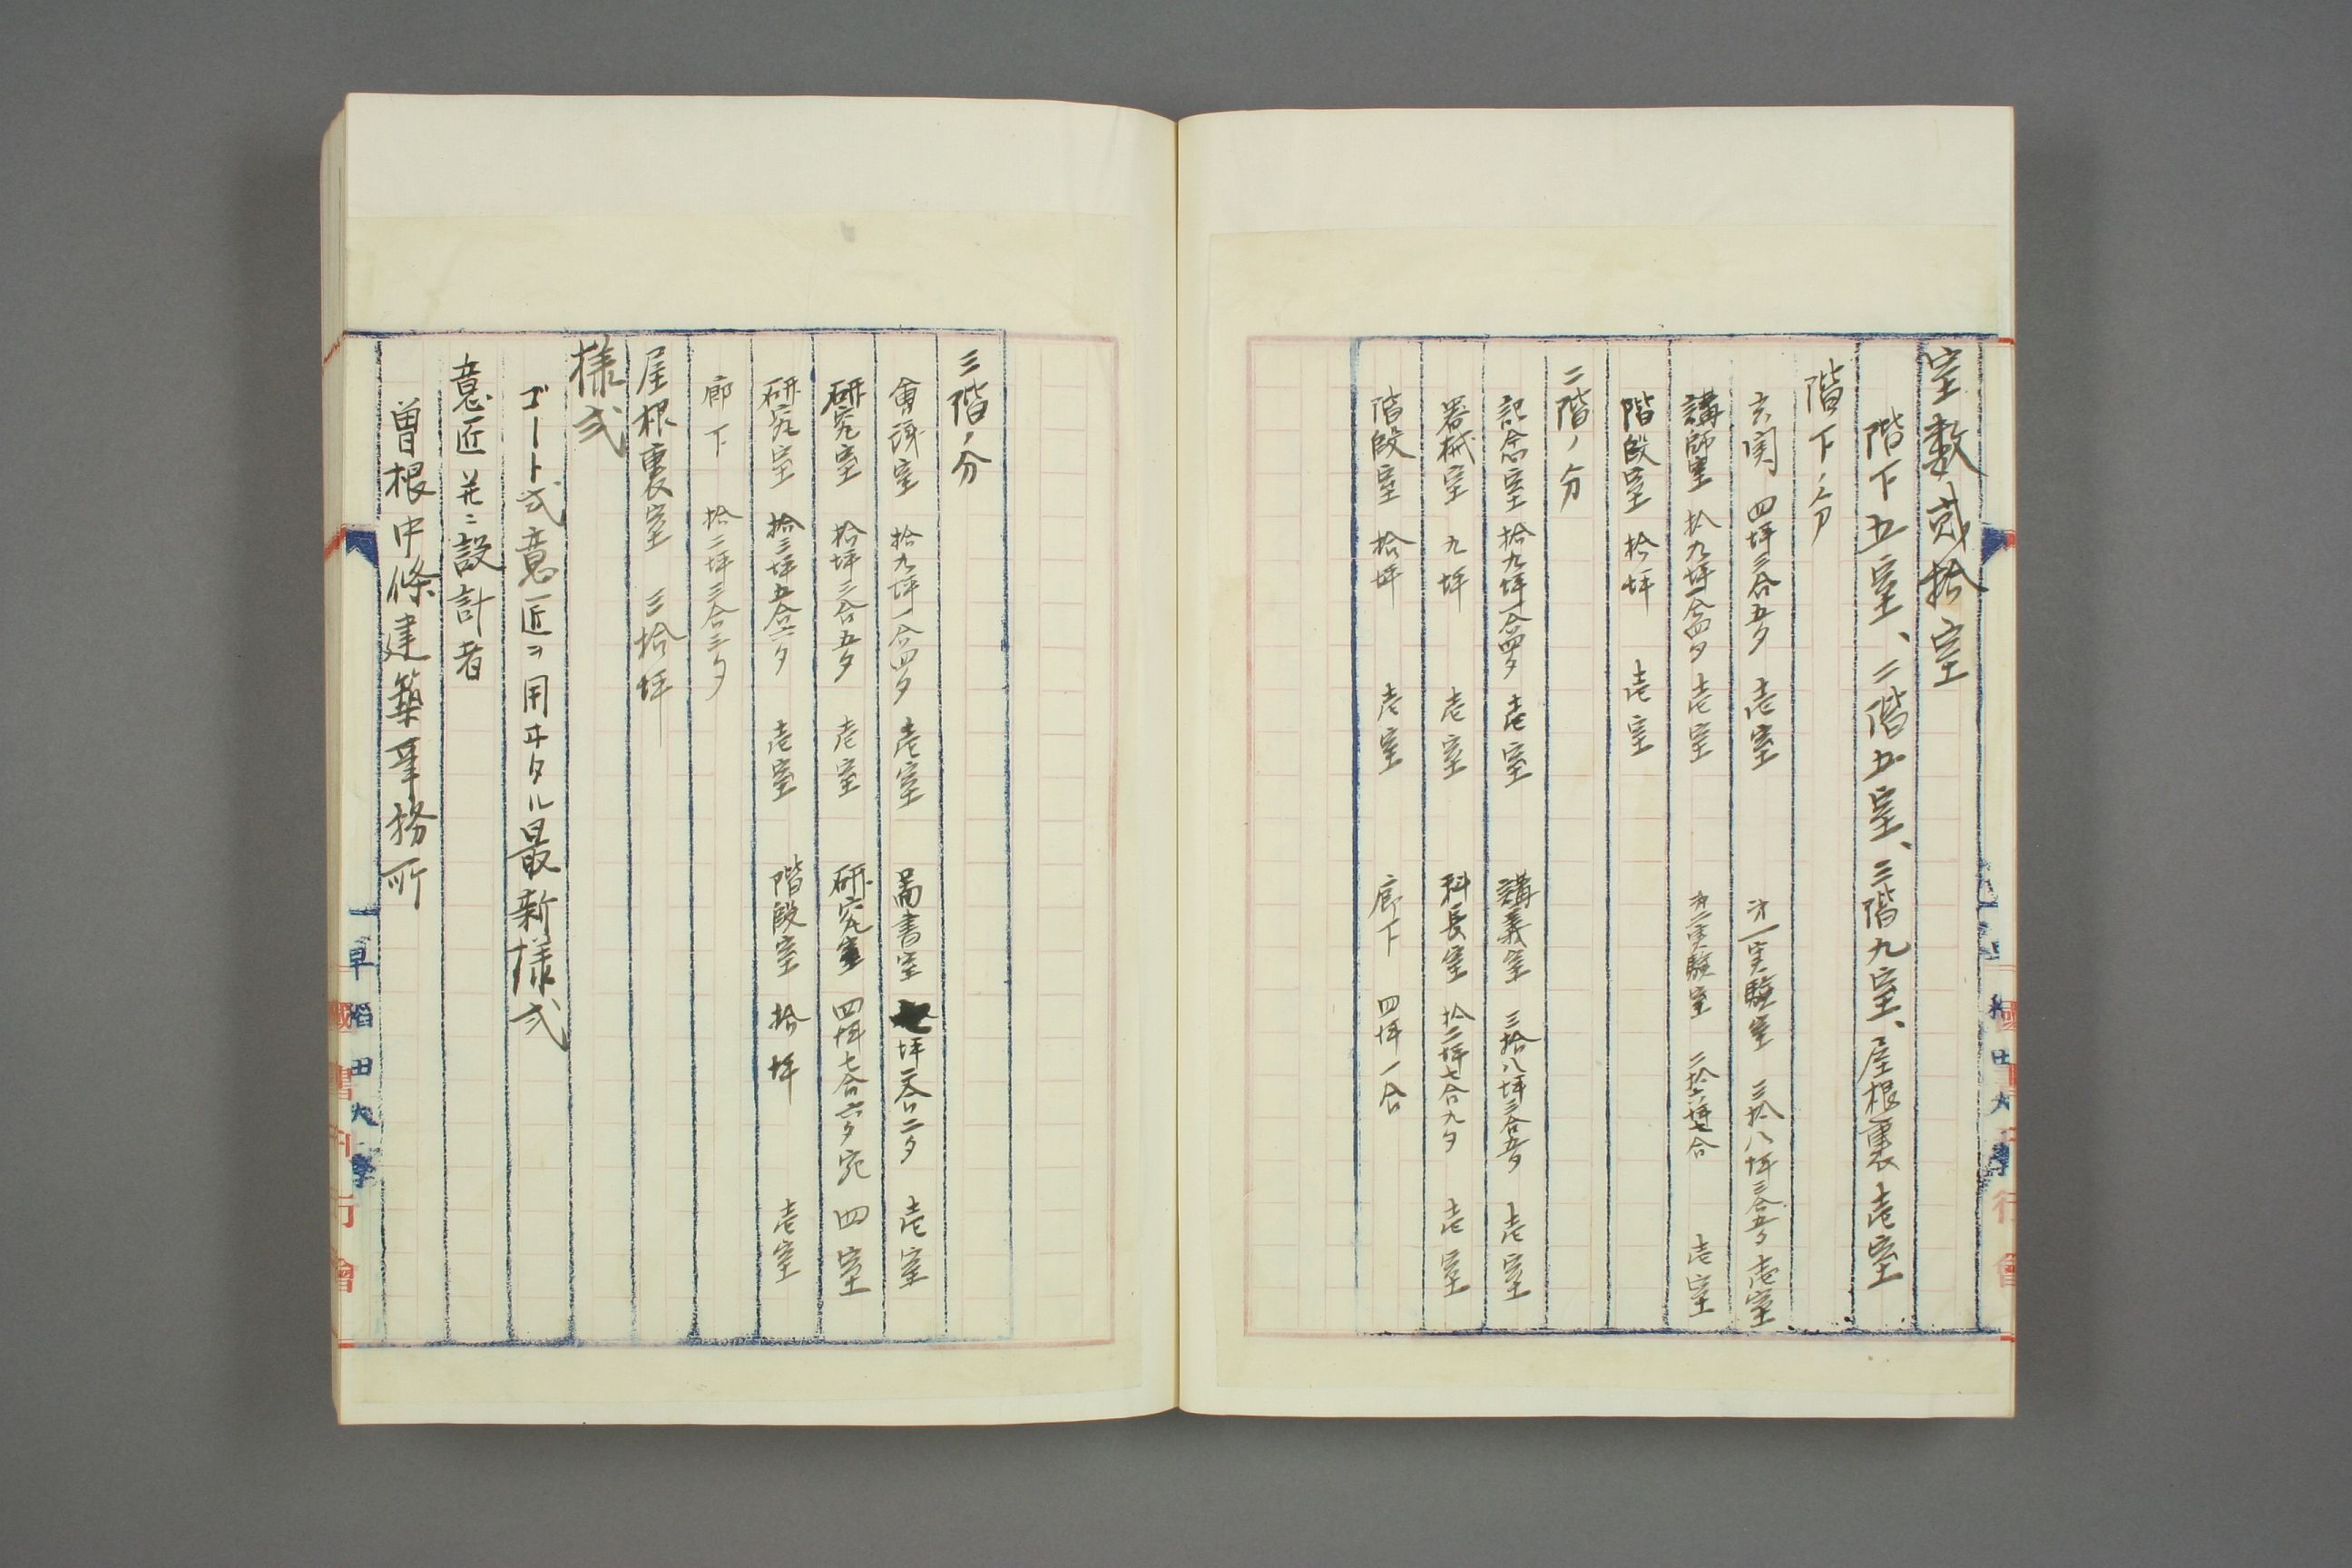 室数弐拾室
階下五室、二階五室、三階九室、屋根裏壱室
階下ノ分
玄関 四坪三合五夕 壱室 第一実験室 三拾八坪三合五夕 壱室
講師室 拾九坪一合四夕 壱室 第二実験室 二拾 坪 合 壱室
階段室 拾坪 壱室
二階ノ分
記念室 拾九坪一合四夕 壱室 講義室 三拾八坪三合五夕 壱室
器械室 九坪 壱室 科長室 拾二坪七合九夕 壱室
階段室 拾坪 壱室 廊下 四坪一合
三階ノ分
會議室 拾九坪一合四夕 壱室 図書室 七坪 合二夕 壱室
研究室 拾坪三合五夕 壱室 研究室 四坪七合六夕宛 四室
研究室 拾三坪五合六夕 壱室 階段室 拾坪 壱室
廊下 拾二坪三合三夕
屋根裏室 三拾坪
様式
ゴート式意匠ヲ用ヰタル最新様式
意匠並ニ設計者
曽根中條建築事務所
早稲田大學